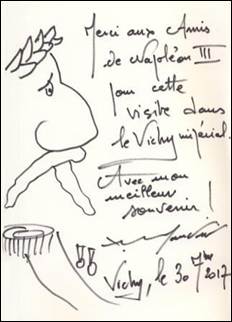 Merci aux Amis
de Napoléon III
pour cette
visite dans
le Vichy impérial.
Avec mon
meilleur
souvenir !
Vichy, le 30 7bre 2017